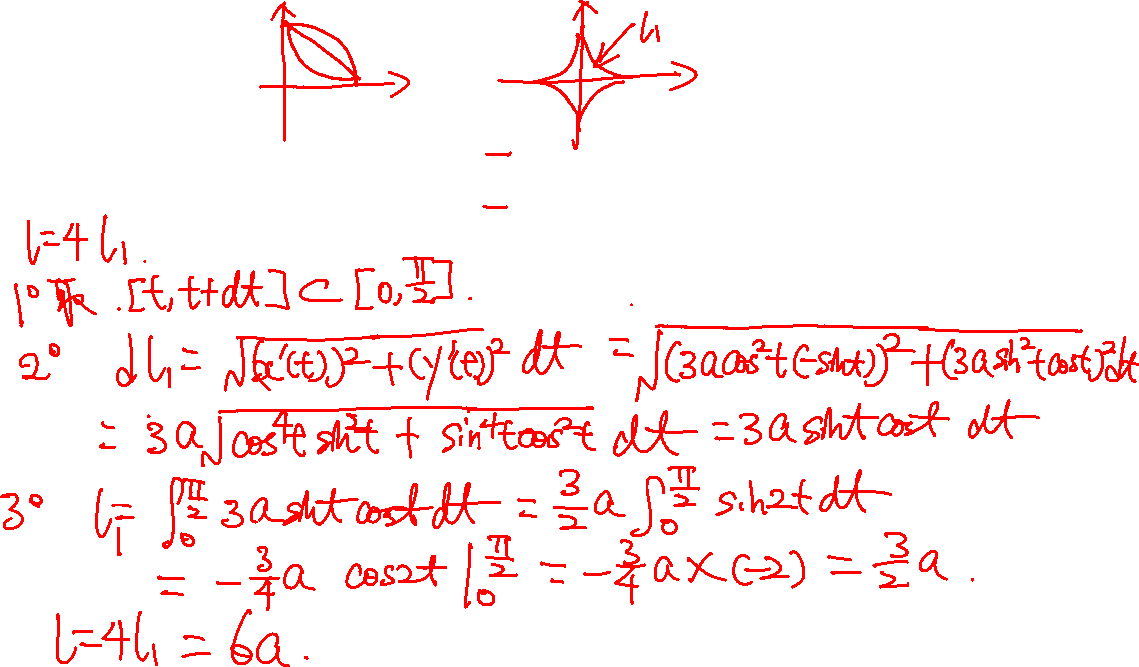 l₁
l=4l₁.
1° 取 [t, t+dt]⊂[0, π/2].
2° dl₁=√((x'(t))²+(y'(t))²) dt = √((3acos²t(-sint))²+(3asin²tcost)²)dt
= 3a√(cos⁴t sin²t + sin⁴tcos²t) dt = 3a sint cost dt
3° l₁= ∫₀^(π/2) 3a sint cost dt = 3/2 a ∫₀^(π/2) sin2t dt
= -3/4 a cos2t |₀^(π/2) = -3/4 a×(-2) = 3/2 a.
l=4l₁ = 6a.